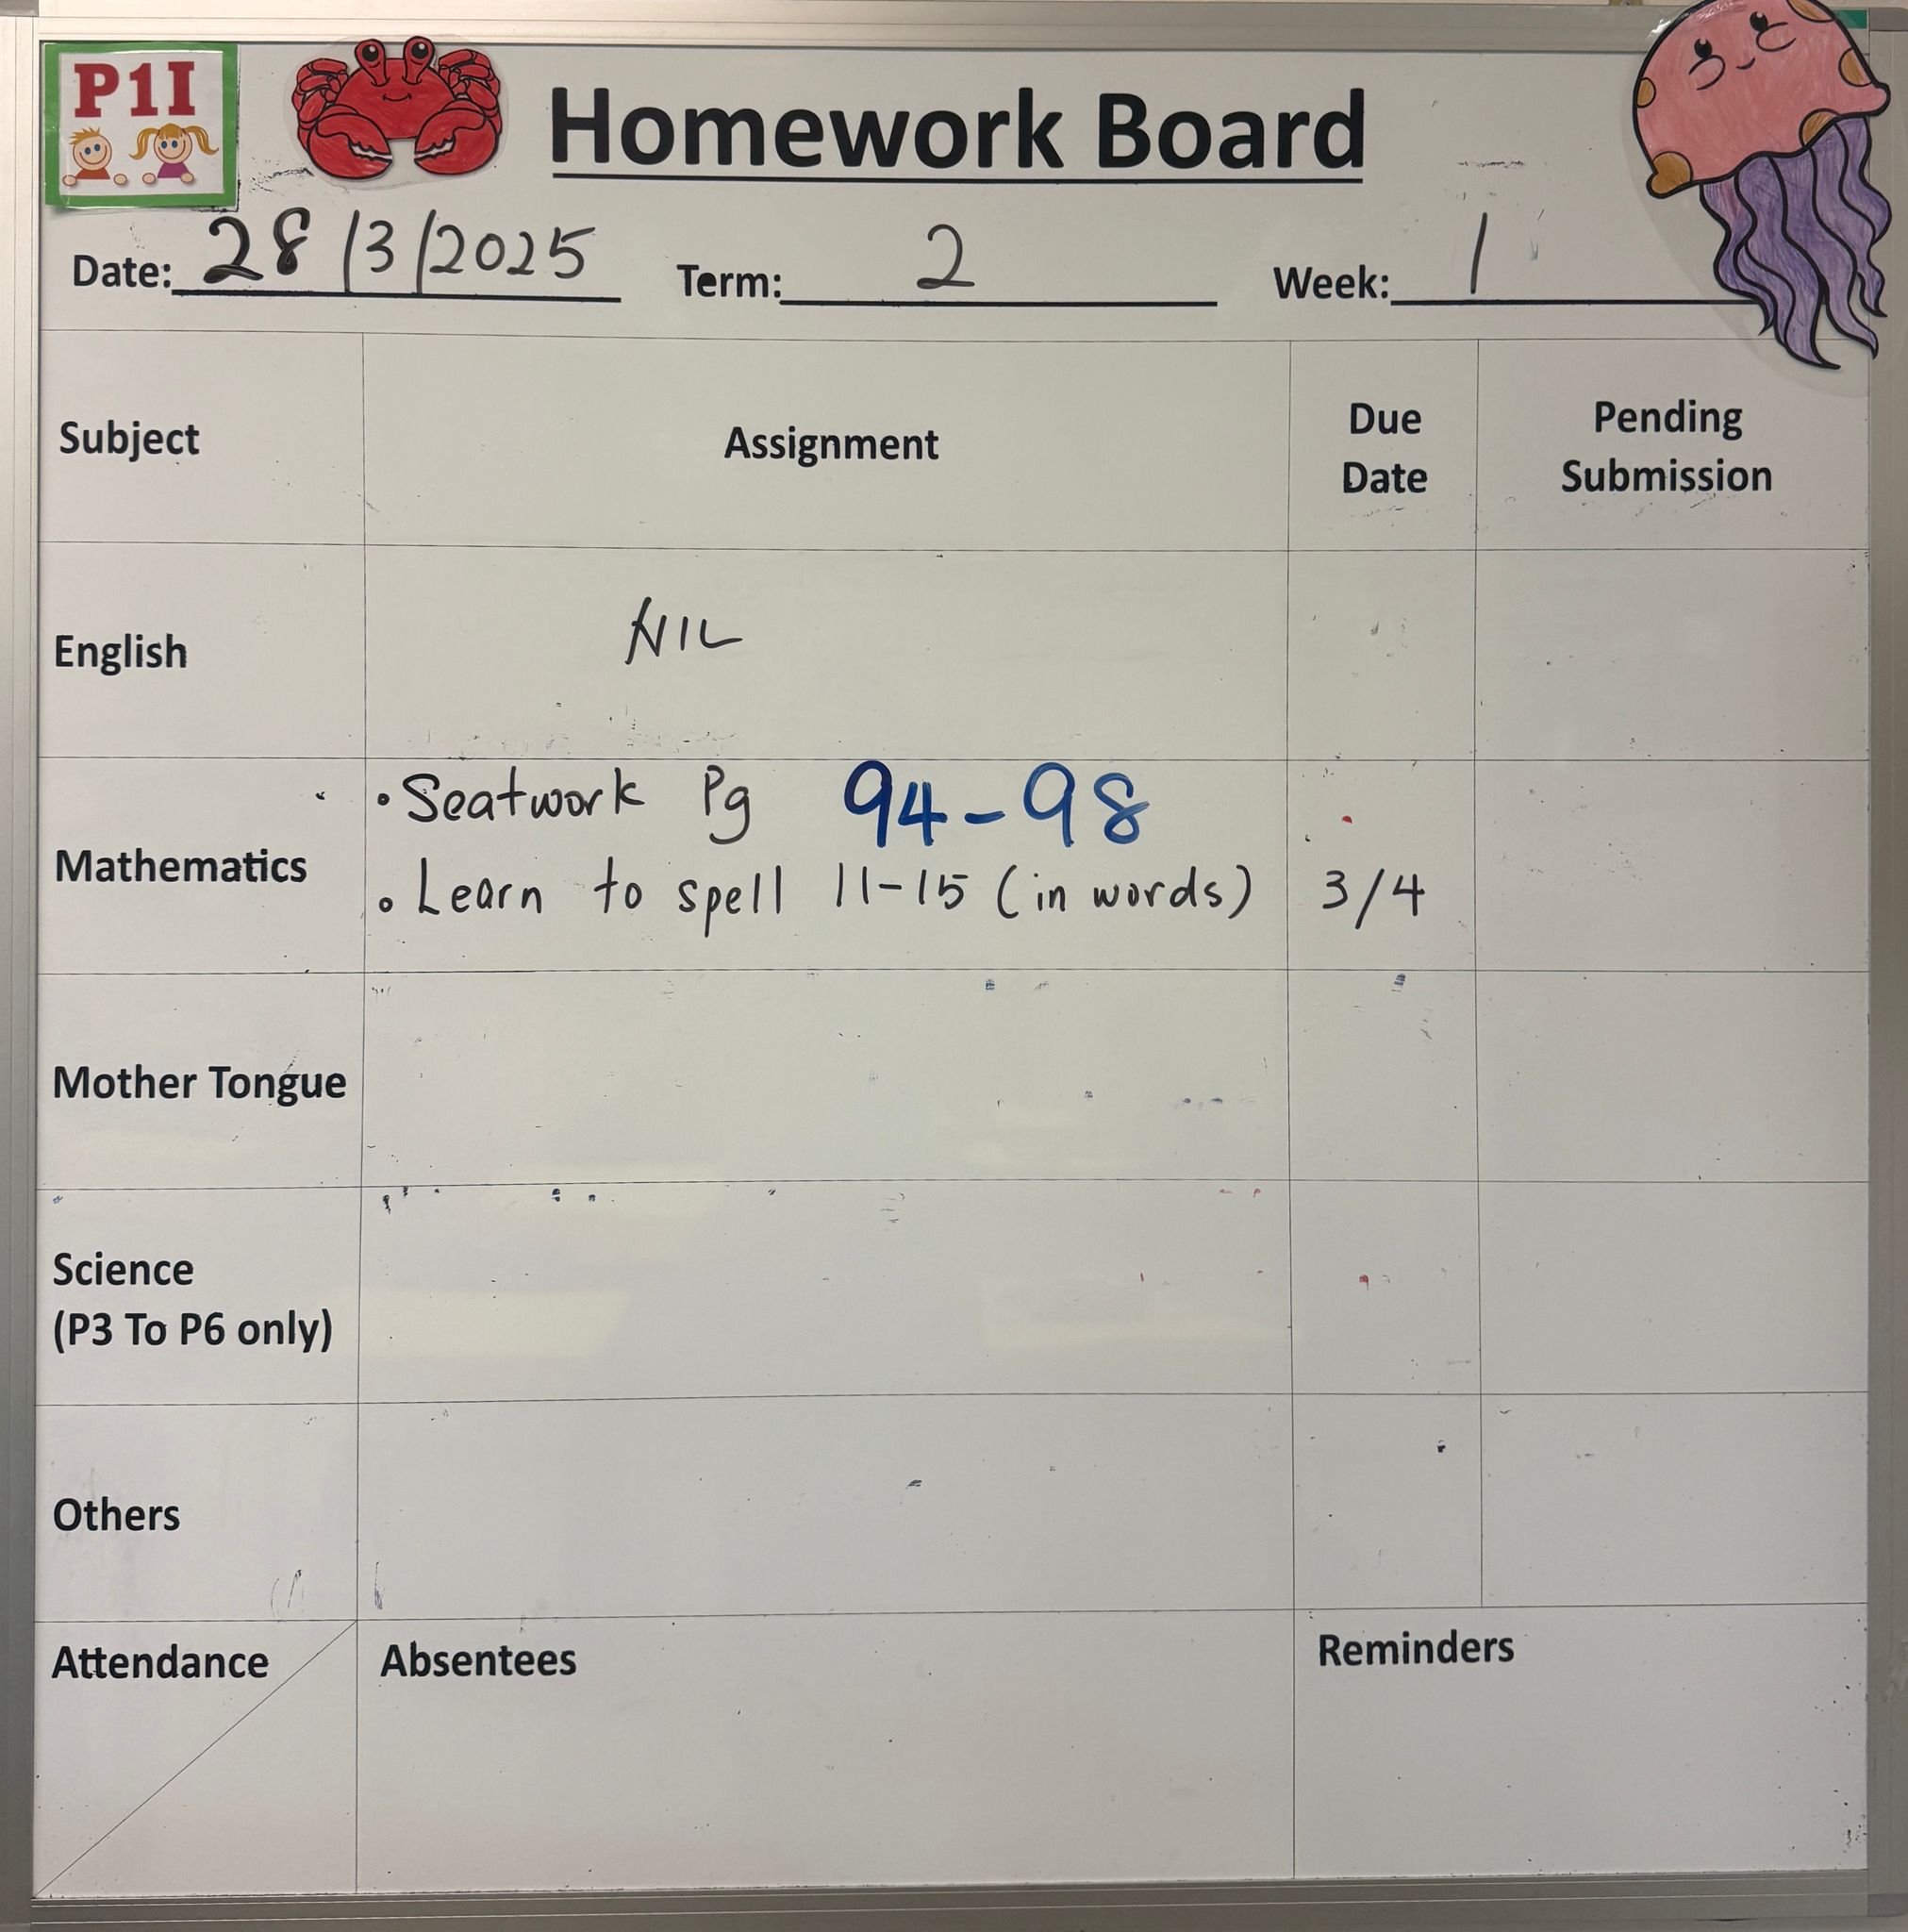 P1I
Homework Board
Date: 28/3/2025 Term: 2 Week: 1
Subject Assignment Due Date Pending Submission
English NIL
Mathematics
• Seatwork Pg 94-98
• Learn to spell 11-15 (in words) 3/4
Mother Tongue
Science
(P3 To P6 only)
Others
Attendance Absentees Reminders